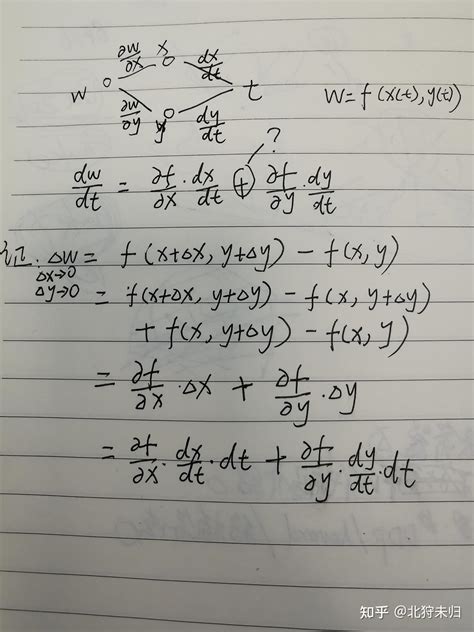 ∂w/∂x x dx/dt
w t w = f(x(t), y(t))
∂w/∂y y dy/dt
?
dw/dt = ∂f/∂x · dx/dt + ∂f/∂y · dy/dt
证: Δw = f(x+Δx, y+Δy) - f(x, y)
Δx→0
Δy→0 = f(x+Δx, y+Δy) - f(x, y+Δy)
+ f(x, y+Δy) - f(x, y)
= ∂f/∂x · Δx + ∂f/∂y · Δy
= ∂f/∂x · dx/dt · dt + ∂f/∂y · dy/dt · dt
知乎 @北狩未归